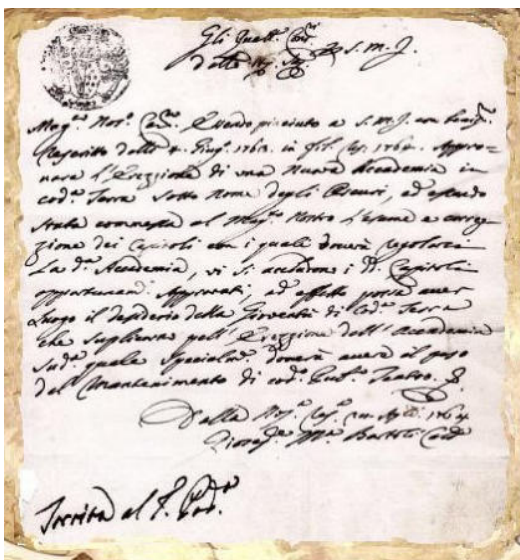 Gli Quatt.
S. M. J.
Essendo piaciuto a S. M. J. con
Rescritto delli 4. Giug.º 1763. in 1764. Appro=
vare l'Erezzione di una Nuova Accademia in
cod.ª Terra sotto nome degli Oscuri, ed essendo
stata commessa al Mag.º Nostro l'esame e corre=
zione dei Capitoli con i quali dovrà regolarsi
La d.ª Accademia, vi si accludono i dd. Capitoli
opportunam.e Approvati, ad effetto possa aver
Luogo il desiderio della Gioventù di Cod.ª Terra
che nell' Erezzione dell' Accademia
Sud.ª quale specialm.e dovrà avere il peso
del Mantenimento di cod.º Pub.º Teatro.
Dalla 1764
M.ª Bartoli
al